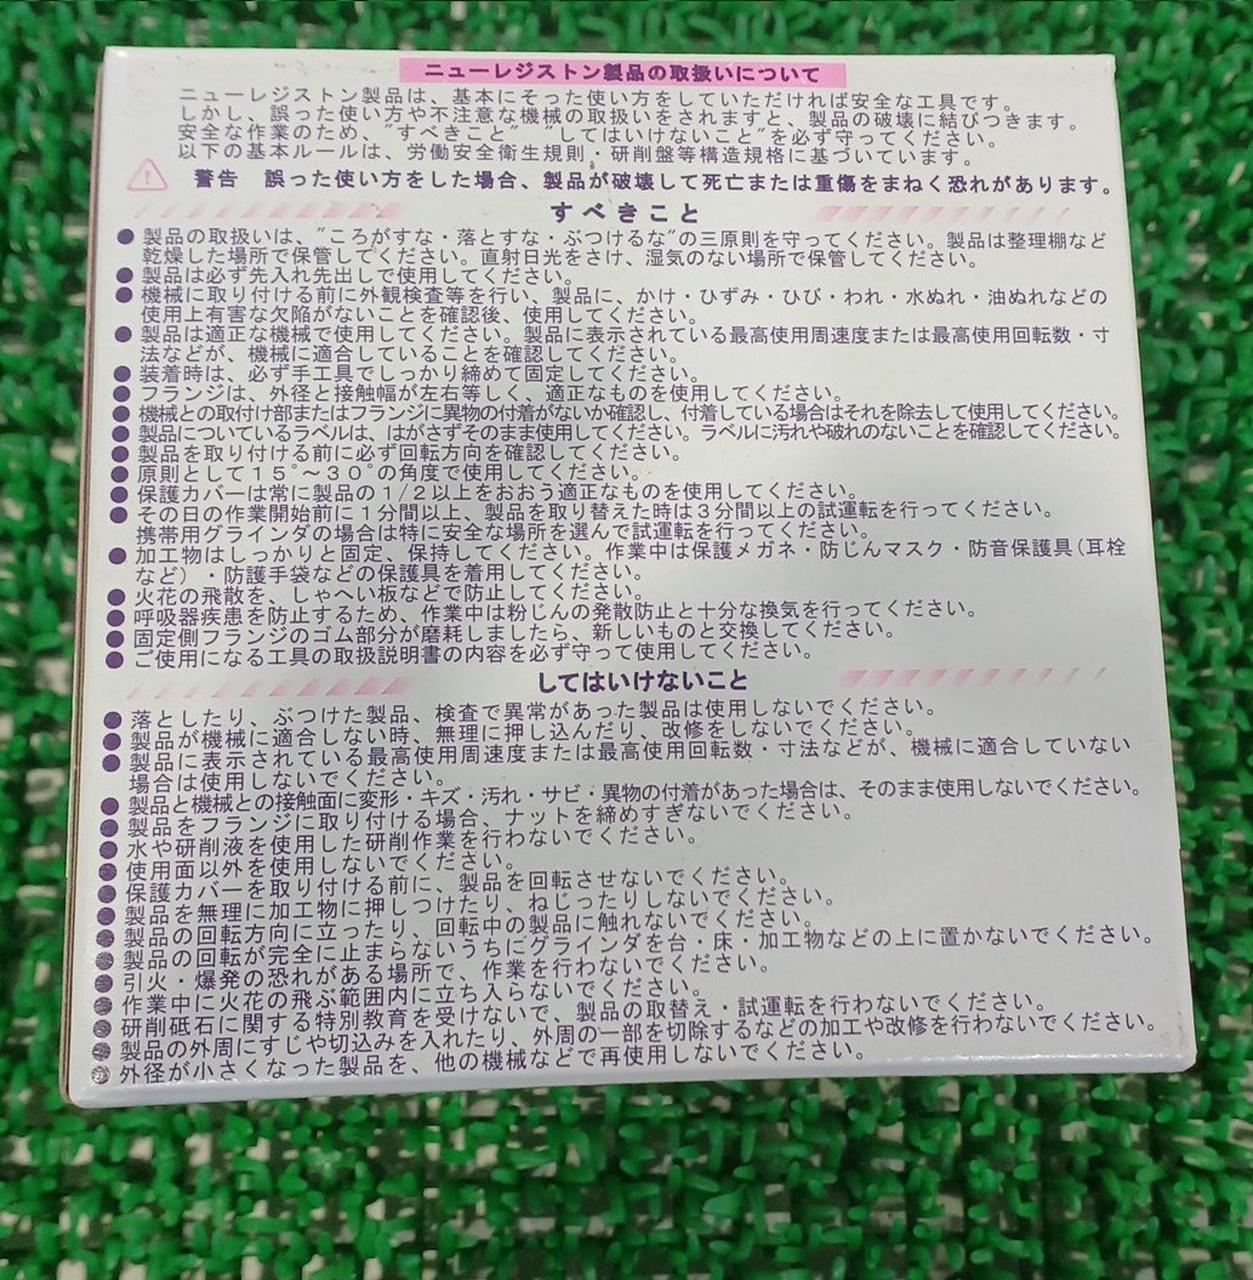 ニューレジストン製品の取扱いについて
ニューレジストン製品は、基本にそった使い方をしていただければ安全な工具です。
しかし、誤った使い方や不注意な機械の取扱いをされますと、製品の破壊に結びつきます。
安全な作業のため、"すべきこと" "してはいけないこと"を必ず守ってください。
以下の基本ルールは、労働安全衛生規則・研削盤等構造規格に基づいています。
警告 誤った使い方をした場合、製品が破壊して死亡または重傷をまねく恐れがあります。
すべきこと
● 製品の取扱いは、"ころがすな・落とすな・ぶつけるな"の三原則を守ってください。製品は整理棚など
乾燥した場所で保管してください。直射日光をさけ、湿気のない場所で保管してください。
● 製品は必ず先入れ先出しで使用してください。
● 機械に取り付ける前に外観検査等を行い、製品に、かけ・ひずみ・ひび・われ・水ぬれ・油ぬれなどの
使用上有害な欠陥がないことを確認後、使用してください。
● 製品は適正な機械で使用してください。製品に表示されている最高使用周速度または最高使用回転数・寸
法などが、機械に適合していることを確認してください。
● 装着時は、必ず手工具でしっかり締めて固定してください。
● フランジは、外径と接触幅が左右等しく、適正なものを使用してください。
● 機械との取付け部またはフランジに異物の付着がないか確認し、付着している場合はそれを除去して使用してください。
● 製品についているラベルは、はがさずそのまま使用してください。ラベルに汚れや破れのないことを確認してください。
● 製品を取り付ける前に必ず回転方向を確認してください。
● 原則として15°～30°の角度で使用してください。
● 保護カバーは常に製品の1/2以上をおおう適正なものを使用してください。
● その日の作業開始前に1分間以上、製品を取り替えた時は3分間以上の試運転を行ってください。
携帯用グラインダの場合は特に安全な場所を選んで試運転を行ってください。
● 加工物はしっかりと固定、保持してください。作業中は保護メガネ・防じんマスク・防音保護具(耳栓
など)・防護手袋などの保護具を着用してください。
● 火花の飛散を、しゃへい板などで防止してください。
● 呼吸器疾患を防止するため、作業中は粉じんの発散防止と十分な換気を行ってください。
● 固定側フランジのゴム部分が磨耗しましたら、新しいものと交換してください。
● ご使用になる工具の取扱説明書の内容を必ず守って使用してください。
してはいけないこと
● 落としたり、ぶつけた製品、検査で異常があった製品は使用しないでください。
● 製品が機械に適合しない時、無理に押し込んだり、改修をしないでください。
● 製品に表示されている最高使用周速度または最高使用回転数・寸法などが、機械に適合していない
場合は使用しないでください。
● 製品と機械との接触面に変形・キズ・汚れ・サビ・異物の付着があった場合は、そのまま使用しないでください。
● 製品をフランジに取り付ける場合、ナットを締めすぎないでください。
● 水や研削液を使用した研削作業を行わないでください。
● 使用面以外を使用しないでください。
● 保護カバーを取り付ける前に、製品を回転させないでください。
● 製品を無理に加工物に押しつけたり、ねじったりしないでください。
● 製品の回転方向に立ったり、回転中の製品に触れないでください。
● 製品の回転が完全に止まらないうちにグラインダを台・床・加工物などの上に置かないでください。
● 引火・爆発の恐れがある場所で、作業を行わないでください。
● 作業中に火花の飛ぶ範囲内に立ち入らないでください。
● 研削砥石に関する特別教育を受けないで、製品の取替え・試運転を行わないでください。
● 製品の外周にすじや切込みを入れたり、外周の一部を切除するなどの加工や改修を行わないでください。
● 外径が小さくなった製品を、他の機械などで再使用しないでください。